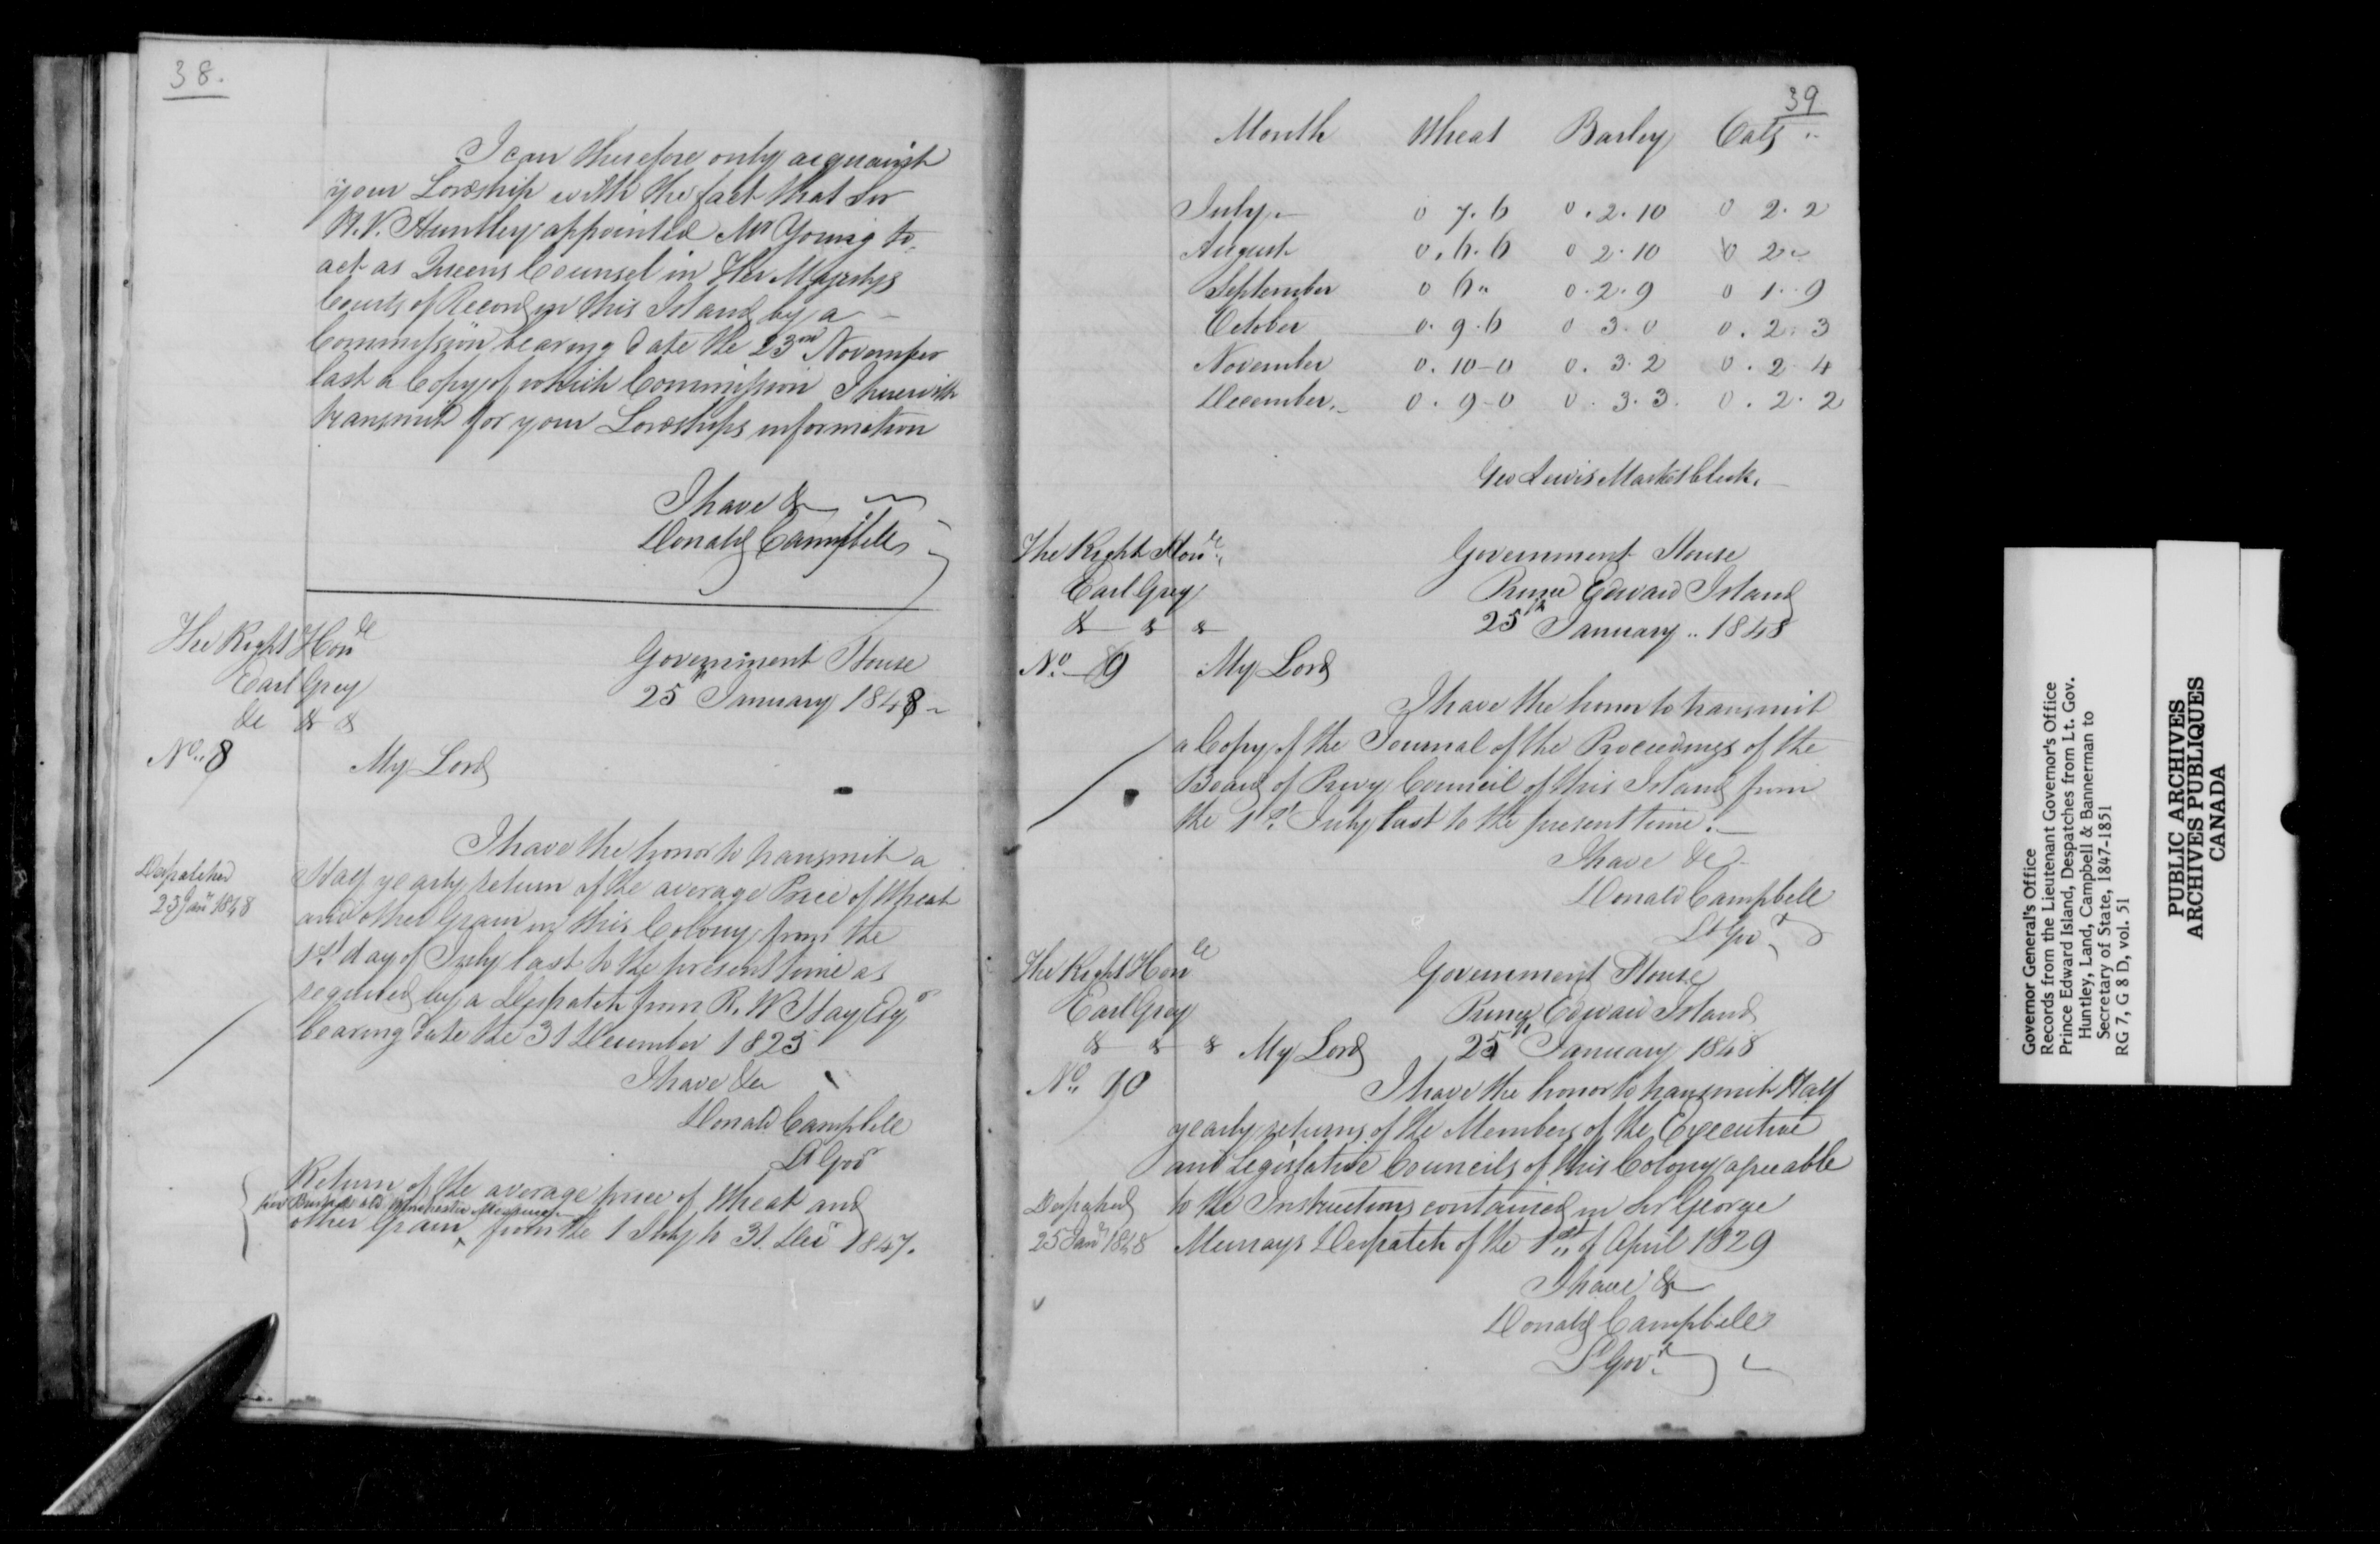 38.
I can therefore only acquaint
your Lordship with the fact that Sir
H. V. Huntley appointed Mr Young to
act as Queens Counsel in Her Majestys
Courts of Record in this Island by a
Commission bearing date the 23rd November
last a Copy of which Commission I herewith
transmit for your Lordships information
I have &
Donald Campbell
The Right Honble
Earl Grey
&c & &
No. 8
Government House
25th January 1848
My Lord
I have the honor to transmit a
Half yearly return of the average Price of Wheat
and other Grain in this Colony from the
1st day of July last to the present time as
required by a Despatch from R. W Hay Esqr
bearing date the 31 December 1825
Despatched
25 Jany 1848
I have &c
Donald Campbell
Lt Govr
Return of the average price of Wheat and
per Bushel old Winchester Measure
other Grain ‸ from the 1 July to 31 Decr 1847.
39
Month Wheat Barley Oats
July 0 7. 6 0. 2. 10 0 2. 2
August 0. 6. 6 0 2. 10 0 2 "
September 0 6 " 0. 2. 9 0 1. 9
October 0. 9. 6 0 3. 0 0. 2. 3
November 0. 10-0 0. 3. 2 0. 2. 4
December 0. 9-0 0. 3. 3. 0. 2. 2
Geo Lewis Market Clerk.
The Right Honle
Earl Grey
& & &
No. 9
Government House
Prince Edward Island
25th January .. 1848
My Lord
I have the honor to transmit
a Copy of the Journal of the Proceedings of the
Board of Privy Council of this Island from
the 1st July last to the present time.
I have &c
Donald Campbell
Lt Govr
The Right Honle
Earl Grey
& & &
No. 10
Government House
Prince Edward Island
25th January 1848
My Lord
I have the honor to transmit Half
yearly returns of the Members of the Executive
and Legislative Councils of this Colony agreeable
to the Instructions contained in Sir George
Murrays Despatch of the 1st of April 1829
Despatched
25 Jany 1848
I have &
Donald Campbell
Lt Govr
Governor General's Office
Records from the Lieutenant Governor's Office
Prince Edward Island, Despatches from Lt. Gov.
Huntley, Land, Campbell & Bannerman to
Secretary of State, 1847-1851
RG 7, G 8 D, vol. 51
PUBLIC ARCHIVES
ARCHIVES PUBLIQUES
CANADA